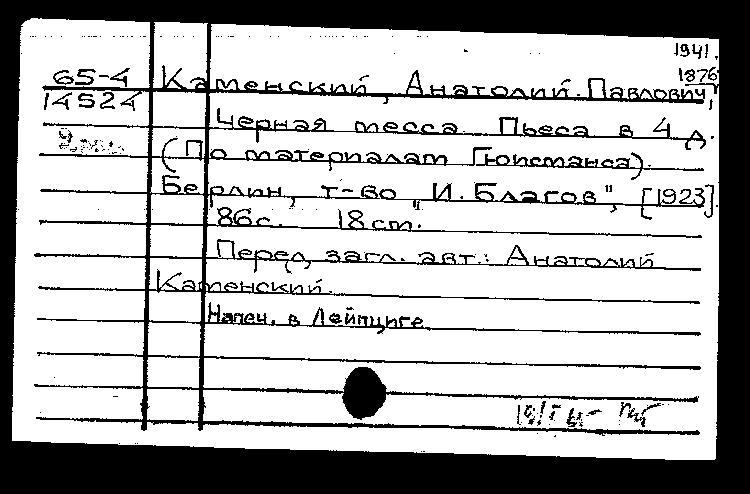 1941.
65-4 Каменский, Анатолий Павлович, 1876
14524
Черная месса. Пьеса в 4 д.
(По материалам Гюисманса).
Берлин, т-во "И. Благов", [1923].
86с. 18см.
Перед загл. авт.: Анатолий
Каменский.
Напеч. в Лейпциге